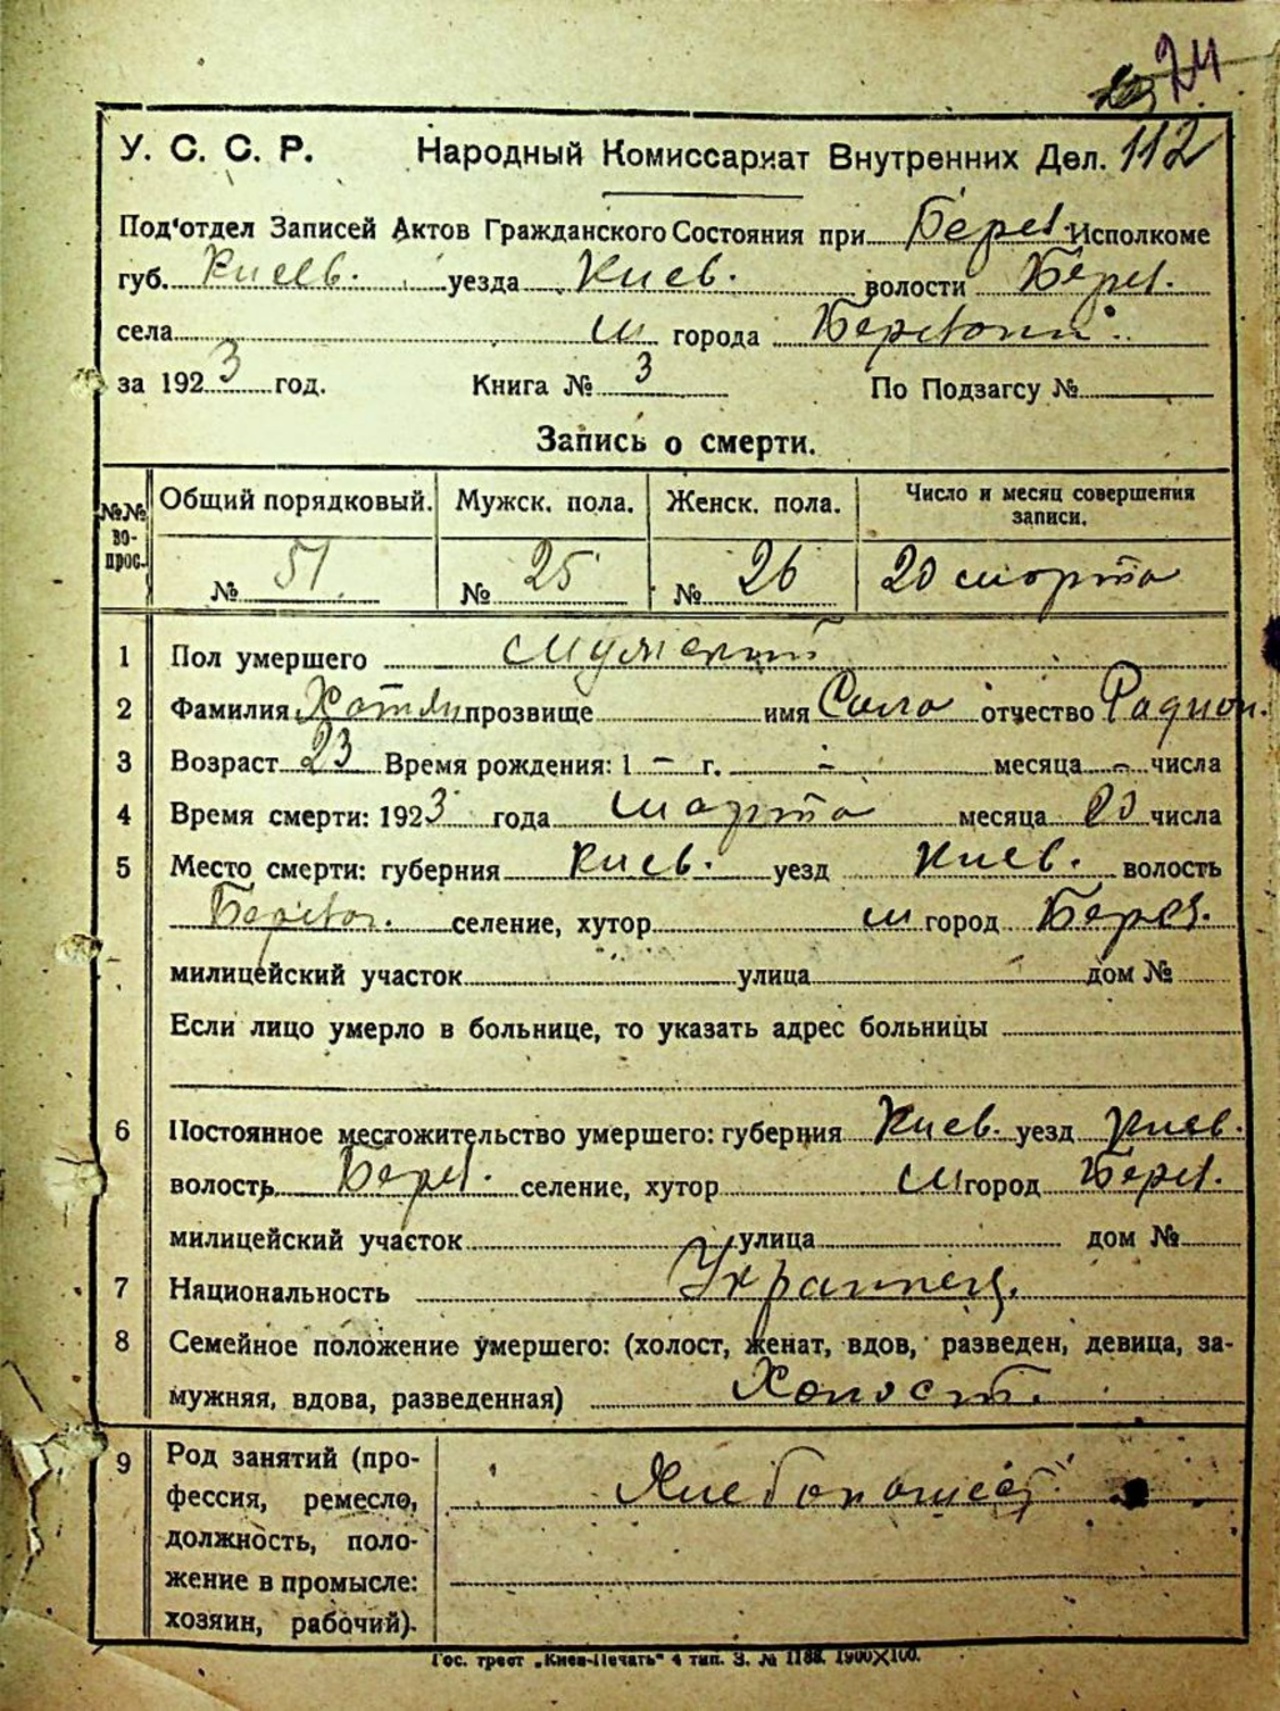 24
112
У. С. С. Р. Народный Комиссариат Внутренних Дел.
Под'отдел Записей Актов Гражданского Состояния при Берез. Исполкоме
губ. Киев. уезда Киев. волости Берез.
села м города
за 1923 год. Книга № 3 По Подзагсу №
Запись о смерти.
№№ во-прос. Общий порядковый. Мужск. пола. Женск. пола. Число и месяц совершения
записи.
№ 51 № 25 № 26 20 марта
1 Пол умершего мужской
2 Фамилия Хотян прозвище имя Сала отчество Радион.
3 Возраст 23 Время рождения: 1 - г. - месяца - числа
4 Время смерти: 1923 года марта месяца 20 числа
5 Место смерти: губерния Киев. уезд Киев. волость
селение, хутор м город Берез.
милицейский участок улица дом №
Если лицо умерло в больнице, то указать адрес больницы
6 Постоянное местожительство умершего: губерния Киев. уезд Киев.
волость Берез. селение, хутор м город Берез.
милицейский участок улица дом №
7 Национальность Украинец.
8 Семейное положение умершего: (холост, женат, вдов, разведен, девица, за-
мужняя, вдова, разведенная) Холост.
9 Род занятий (про-
фессия, ремесло,
должность, поло-
жение в промысле:
хозяин, рабочий).
Хлебопашец
Гос. трест „Киев-Печать" 4 тип. З. № 1188. 1900X100.